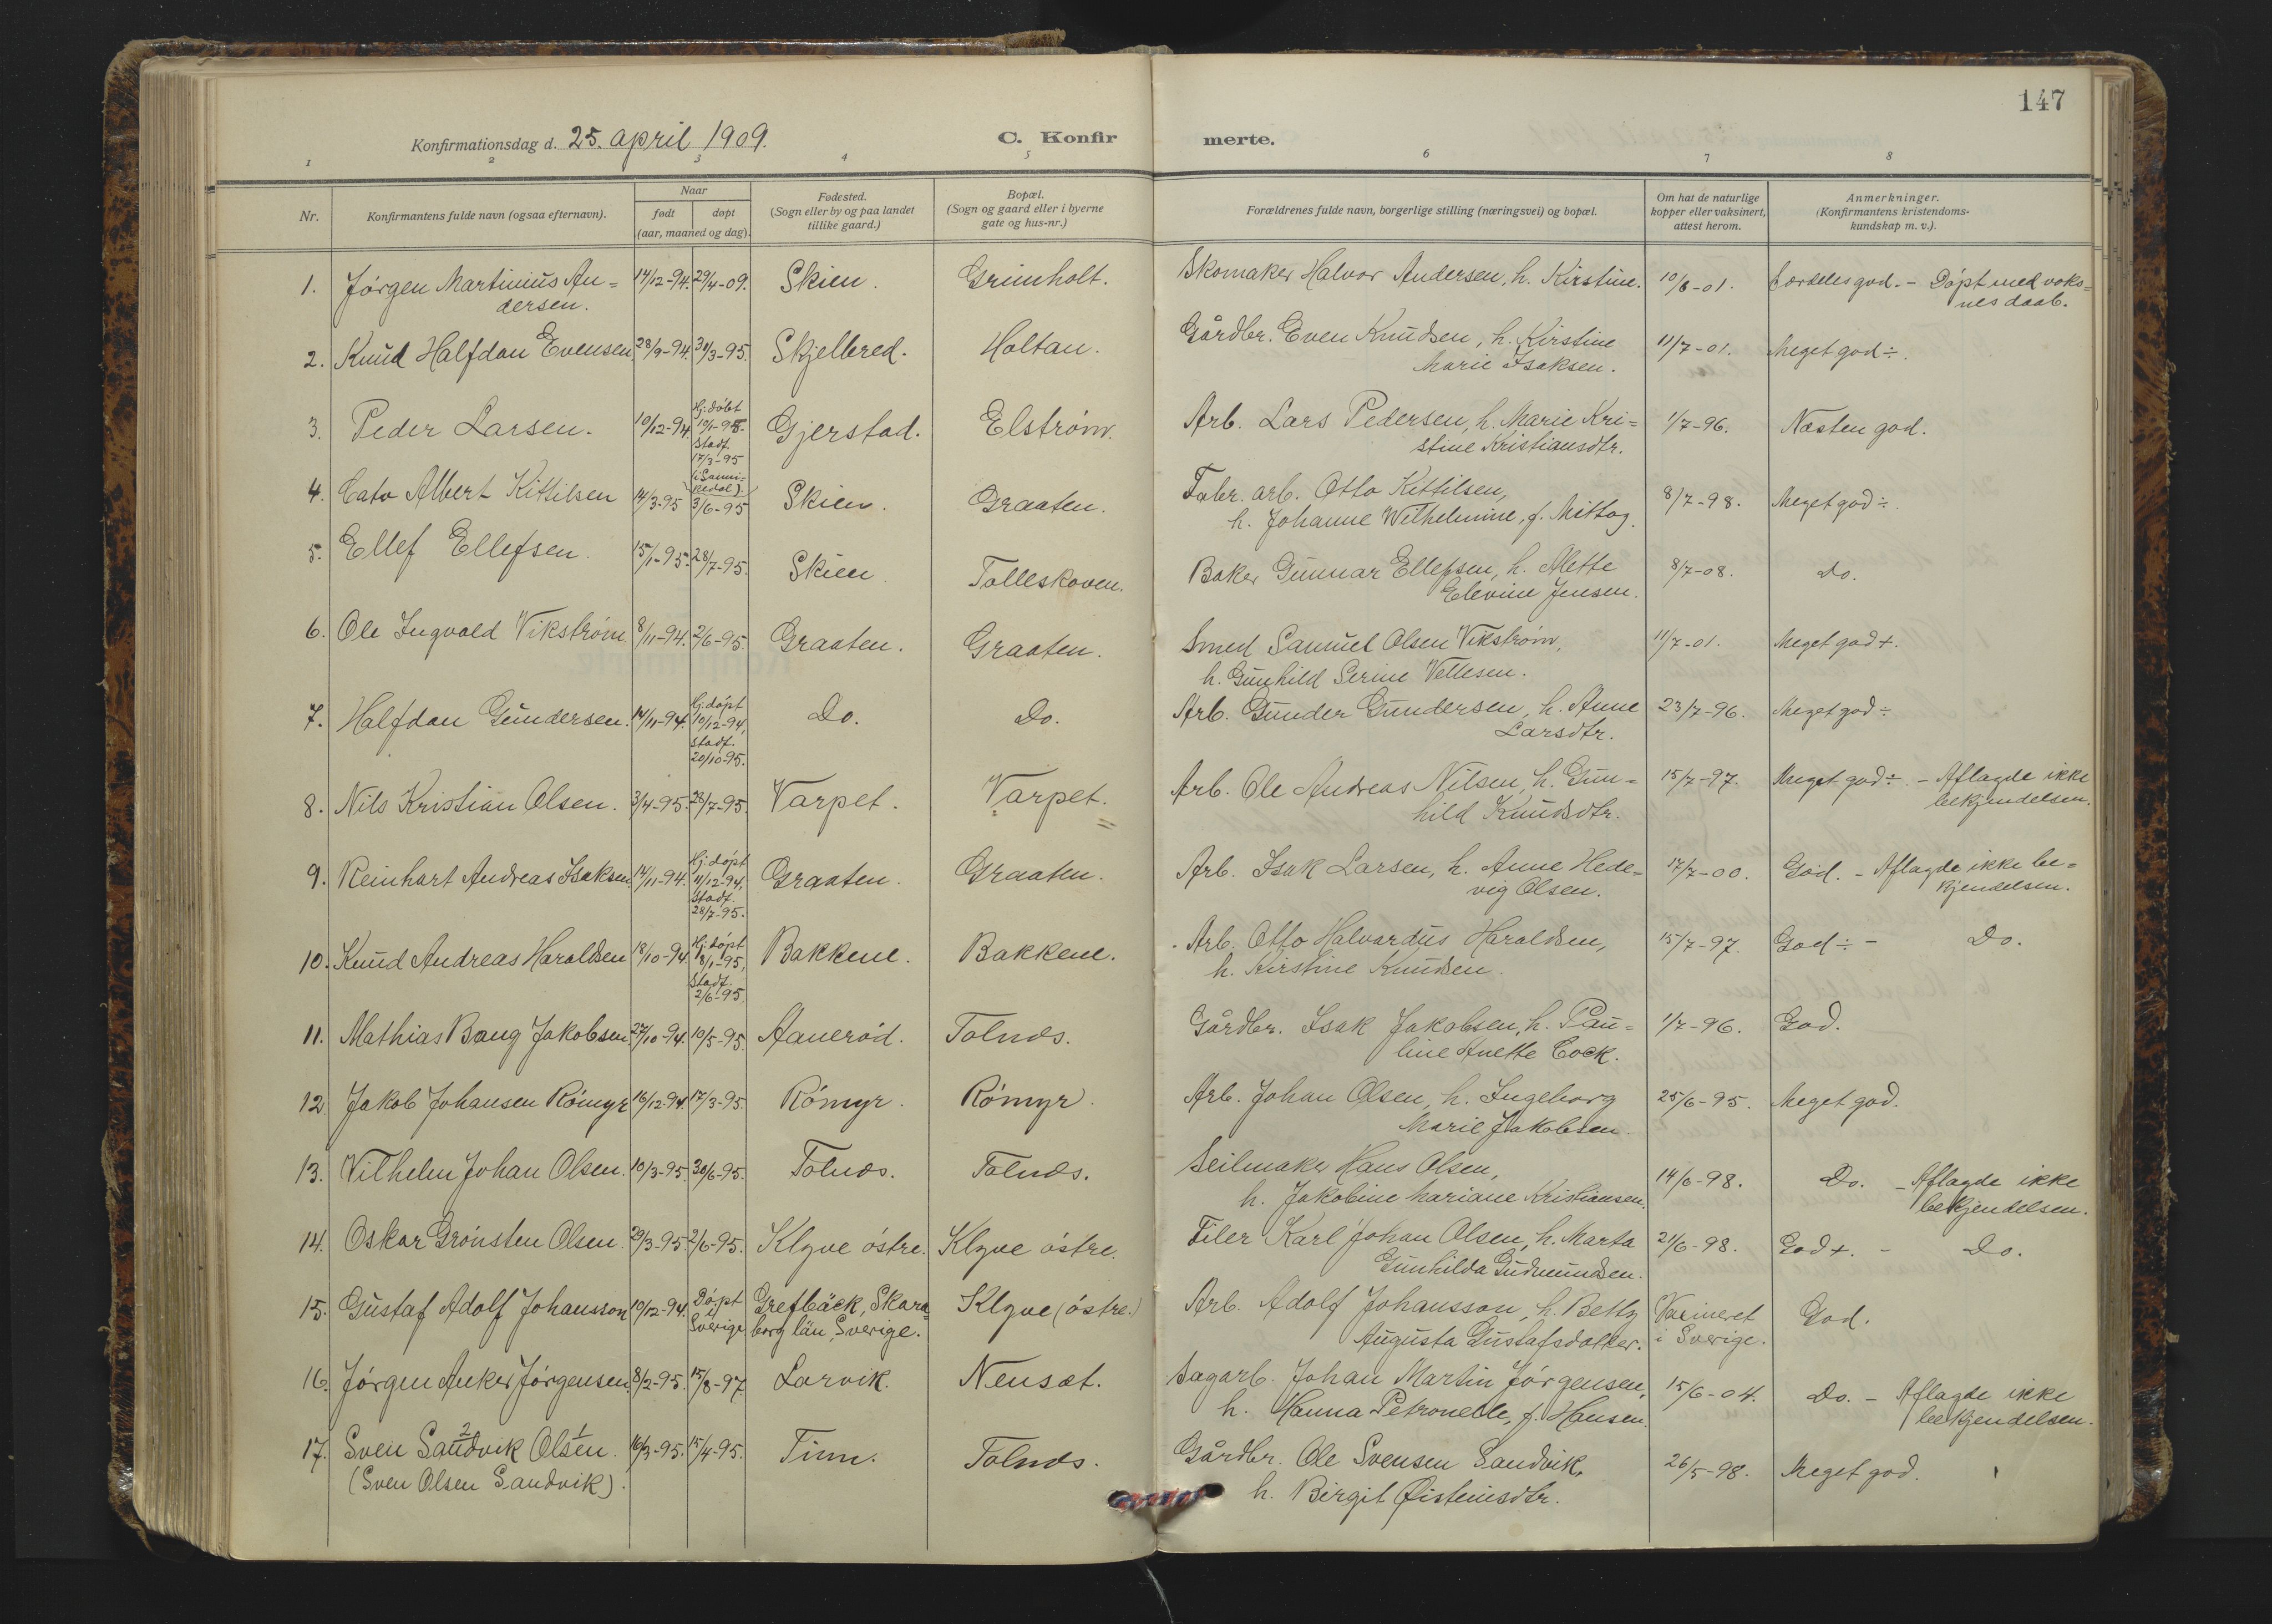 147
Konfirmationsdag d. 25. april 1909.
C. Konfir
merte.
1 2 3 4 5 6 7 8
Nr.
Konfirmantens fulde navn (ogsaa efternavn).
Naar
født døpt
(aar, maaned og dag).
Fødested.
(Sogn eller by og paa landet
tillike gaard.)
Bopæl.
(Sogn og gaard eller i byerne
gate og hus-nr.)
Forældrenes fulde navn, borgerlige stilling (næringsvei) og bopæl.
Om hat de naturlige
kopper eller vaksinert,
attest herom.
Anmerkninger.
(Konfirmantens kristendoms-
kundskap m. v.).
1. Jørgen Martinius An= 14/12-94. 29/4-09. Skien. Grimholt. Skomaker Halvor Andersen, h. Kirstine. 10/6-01. Særdeles god. - Døpt med voks=
dersen. nes daab.
2. Knud Halfdan Evensen 28/9-94. 31/3-95. Skjelbred. Holtan. Gårdbr. Even Knudsen, h. Kirstine 11/7-01. Meget god÷.
Marie Isaksen.
3. Peder Larsen. 10/12-94. Hj: døbt Gjerstad. Elstrøm. Arb. Lars Pedersen, h. Marie Kri= 1/7-96. Næsten god.
19/1-95. stine Kristiansdtr.
stadf.
17/3-95
(i Sanni=
kedal)
4. Cato Albert Kittilsen 14/3-95 3/6-95 Skien. Graaten. Fabr. arb. Otto Kittilsen, 8/7-98. Meget god÷.
h. Johanne Wilhelmine, f. Mittag.
5. Ellef Ellefsen. 15/1-95. 28/7-95. Skien Tolleskoven. Baker Gunnar Ellefsen, h. Alette 8/7-08. Do.
Elevine Jensen.
6. Ole Ingvald Vikstrøm 8/11-94. 2/6-95. Graaten. Graaten. Smed Samuel Olsen Vikstrøm, 11/7-01. Meget god+.
h. Gunhild Serine Vettesen.
7. Halfdan Gundersen. 14/11-94. Hj: døpt Do. Do. Arb. Gunder Gundersen, h. Anne 23/7-96. Meget god÷
10/12-94, Larsdtr.
stadf.
20/10-95.
8. Nils Kristian Olsen. 3/4-95. 28/7-95. Varpet. Varpet. Arb. Ole Andreas Nilsen, h. Gun= 15/7-97. Meget god÷. - Aflagde ikke
hild Knudsdtr. bekjendelsen.
9. Reinhart Andreas Isaksen 14/11-94. Hj: døpt Graaten. Graaten. Arb. Isak Larsen, h. Anne Hede= 17/7-00. God. - Aflagde ikke be=
11/12-94, vig Olsen. kjendelsen.
stadf.
28/7-95.
10. Knud Andreas Haraldsen 18/10-94 Hj: døpt Bakkene. Bakkene. Arb. Otto Halvardus Haraldsen, 15/7-97. God÷ - Do.
8/1-95, h. Kirstine Knudsen.
stadf.
2/6-95.
11. Mathias Bang Jakobsen. 27/10-94. 10/5-95. Aanerød. Tolnæs. Gårdbr. Isak Jakobsen, h. Pau= 1/7-96. God.
line Anette Cock.
12. Jakob Johansen Rømyr 16/12-94. 17/3-95. Rømyr. Rømyr. Arb. Johan Olsen, h. Ingeborg 25/6-95. Meget god.
Marie Jakobsen.
13. Vilhelm Johan Olsen. 10/3-95. 30/6-95. Tolnæs. Tolnæs. Seilmaker Hans Olsen, 14/6-98. Do. - Aflagde ikke
h. Jakobine Mariane Kristiansen. bekjendelsen.
14. Oskar Grønsten Olsen. 29/3-95. 2/6-95. Klyve østre. Klyve østre. Filer Karl Johan Olsen, h. Marta 21/6-98. God+. - Do.
Gunhilda Gudmundsen.
15. Gustaf Adolf Johansson 10/12-94. Døpt Grefbäck, Skara= Klyve (østre.) Arb. Adolf Johansson, h. Betty Vacineret God.
i Sverige borg län, Sverige. Augusta Gustafsdotter. i Sverige.
16. Jørgen Anker Jørgensen. 8/2-95. 15/8-97 Larvik. Nensæt. Sagarb. Johan Martin Jørgensen, 15/6-04. Do. - Aflagde ikke
h. Hanna Petronelle, f. Hansen. bekjendelsen.
17. Sven Sandvik Olsen. 16/3-95. 15/4-95. Tinn. Tolnæs. Gårdbr. Ole Svensen Sandvik, 26/5-98. Meget god.
(Sven Olsen Sandvik). h. Birgit Øisteinsdtr.